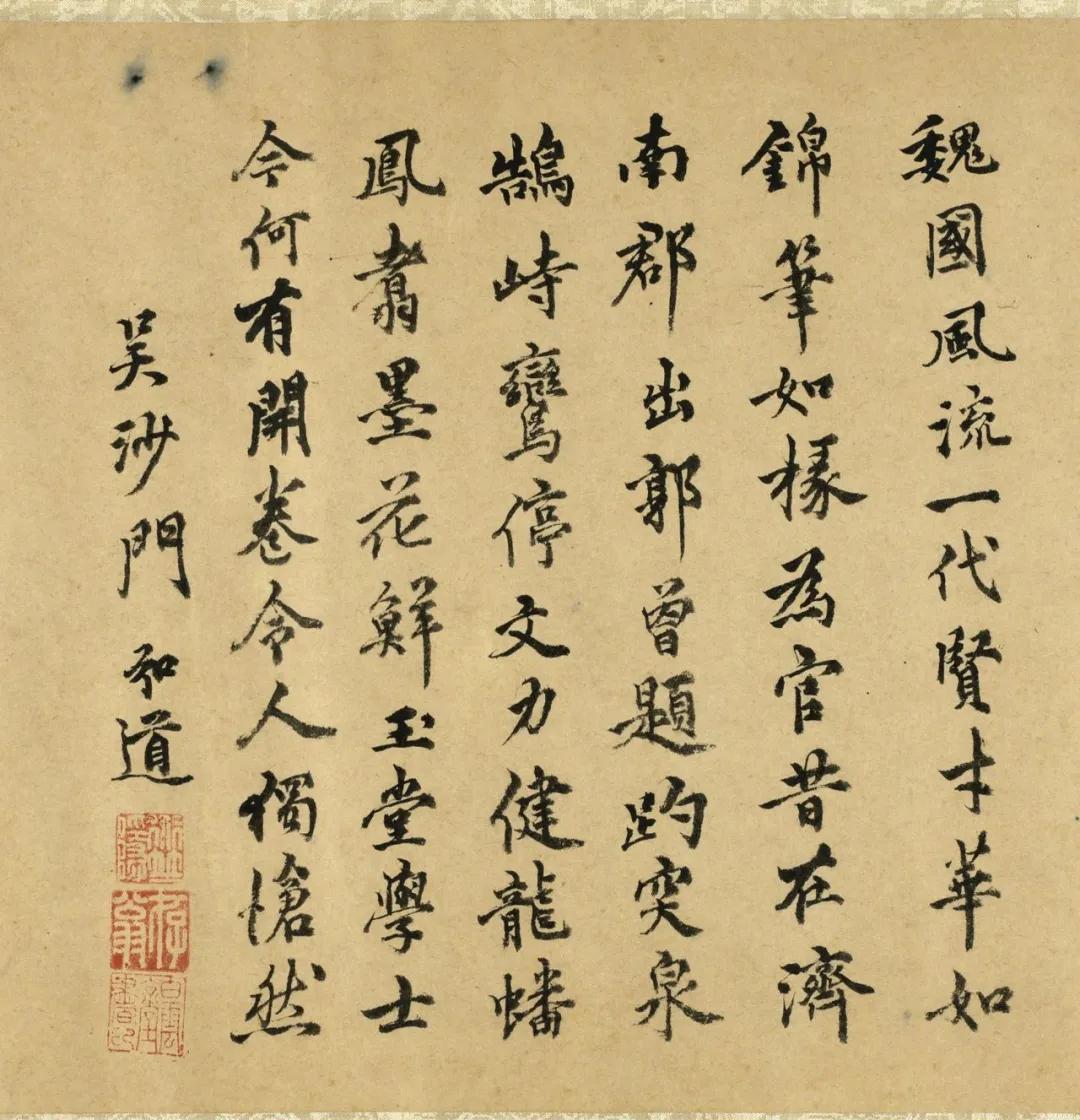 魏國風流一代賢才華如
錦筆如椽為官昔在濟
南郡出郭曾題趵突泉
鵠峙鸞停文力健龍蟠
鳳翥墨花鮮玉堂學士
今何有開卷令人獨愴然
吳沙門弘道